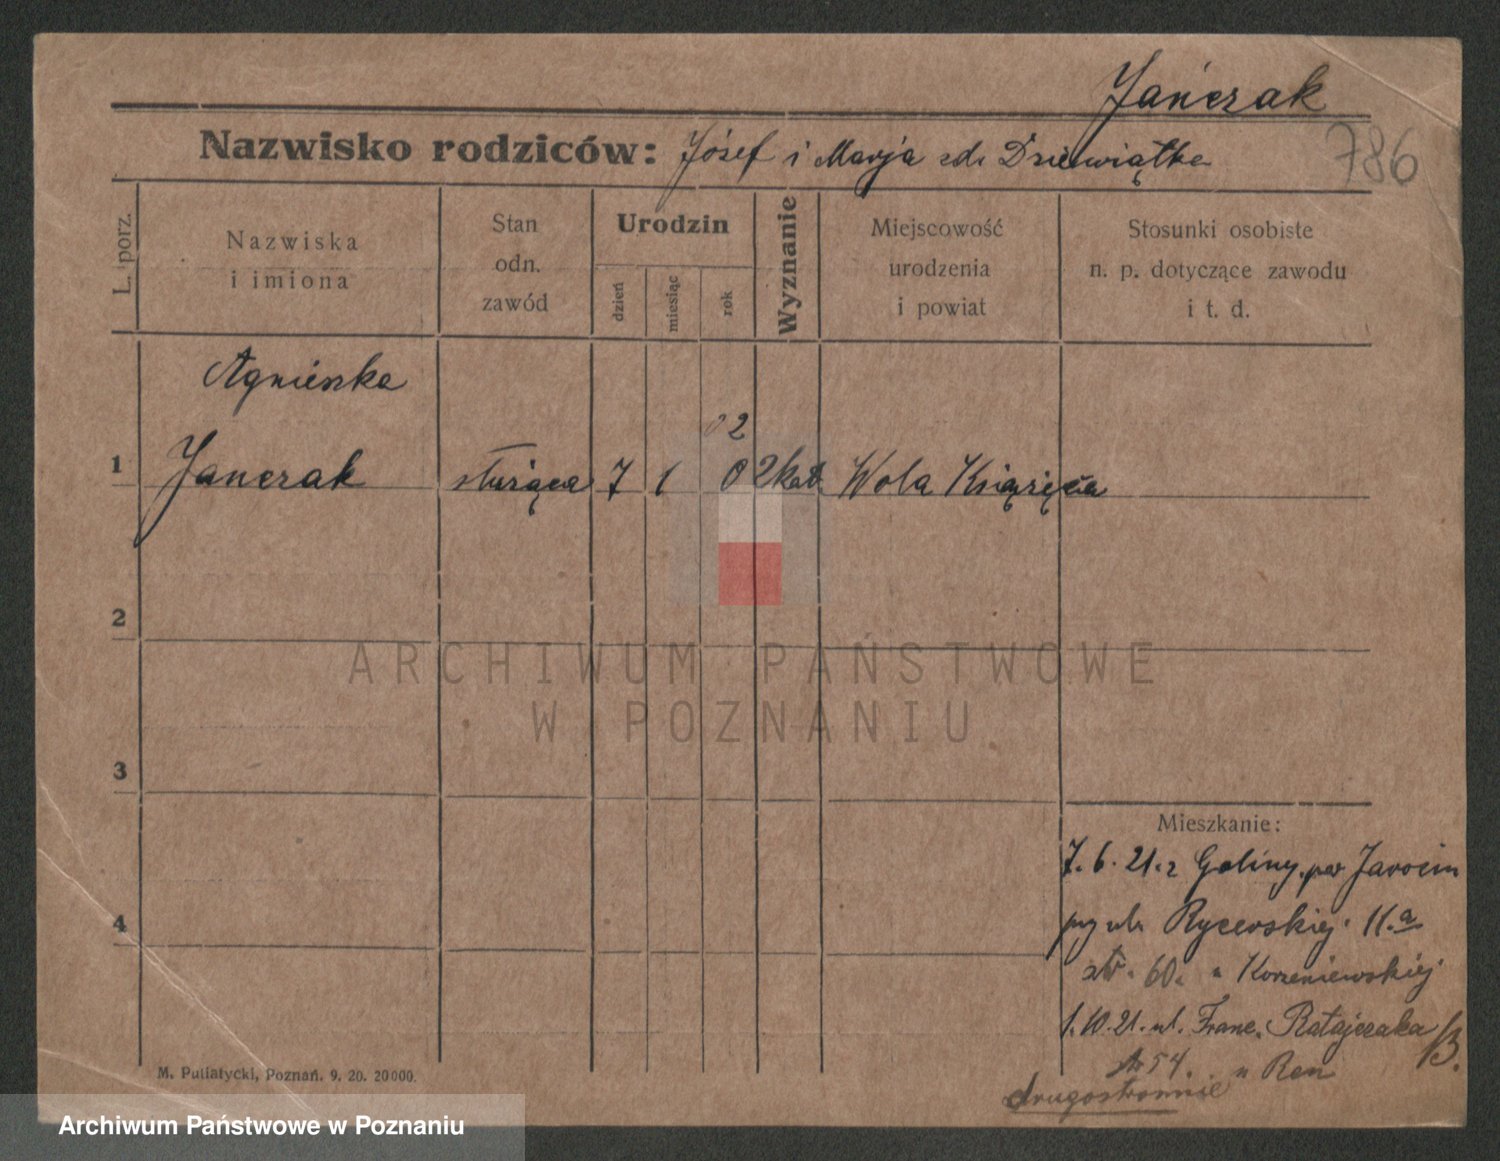 Jańczak
786
Nazwisko rodziców: Józef i Marja zd. Dziewiątka
L. porz.
Nazwiska i imiona
Stan odn. zawód
Urodzin
dzień
miesiąc
rok
Wyznanie
Miejscowość urodzenia i powiat
Stosunki osobiste n. p. dotyczące zawodu i t. d.
Agnieszka
02
1 Janczak służąca 7 1 02 kat. Wola Książęca
2
3
4
Mieszkanie:
7.6.21. z Goliny, pow Jarocin
przy ul. Rycerskiej 11.a
60. u Korzeniewskiej
1.10.21. ul. Franc. Ratajczaka
54. u Ren
B.
drugostronnie
M. Putiatycki, Poznań. 9. 20. 20000.
ARCHIWUM PAŃSTWOWE
W POZNANIU
Archiwum Państwowe w Poznaniu